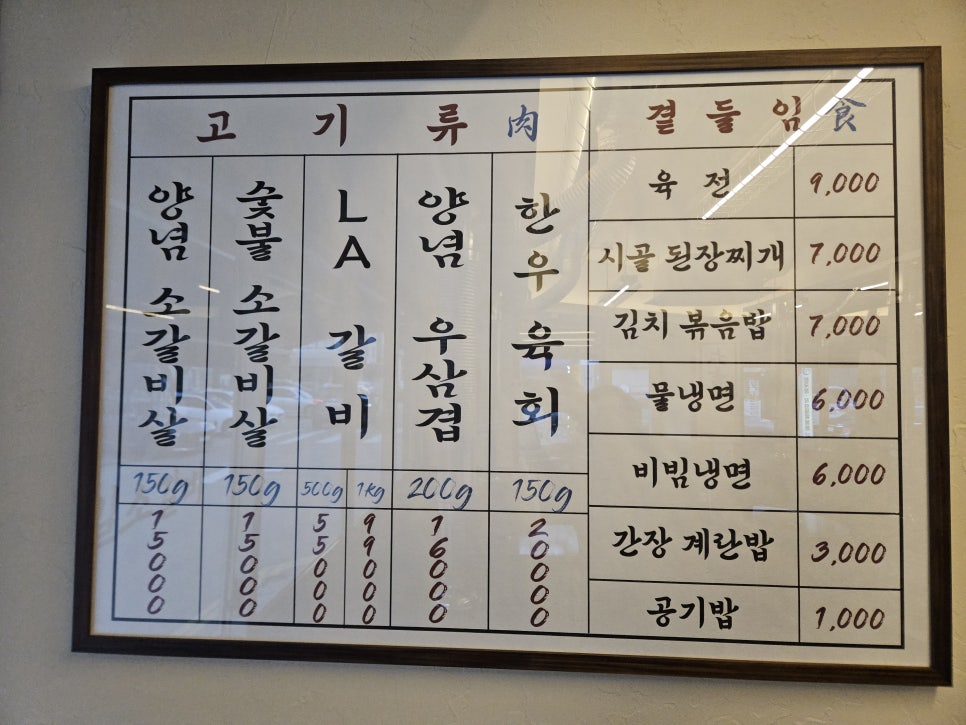 고기류 肉
양념 소갈비살
150g
15000
숯불 소갈비살
150g
15000
LA 갈비
500g 1kg
55000 99000
양념 우삼겹
200g
16000
한우 육회
150g
20000
곁들임 食
육전 9,000
시골 된장찌개 7,000
김치 볶음밥 7,000
물냉면 6,000
비빔냉면 6,000
간장 계란밥 3,000
공기밥 1,000